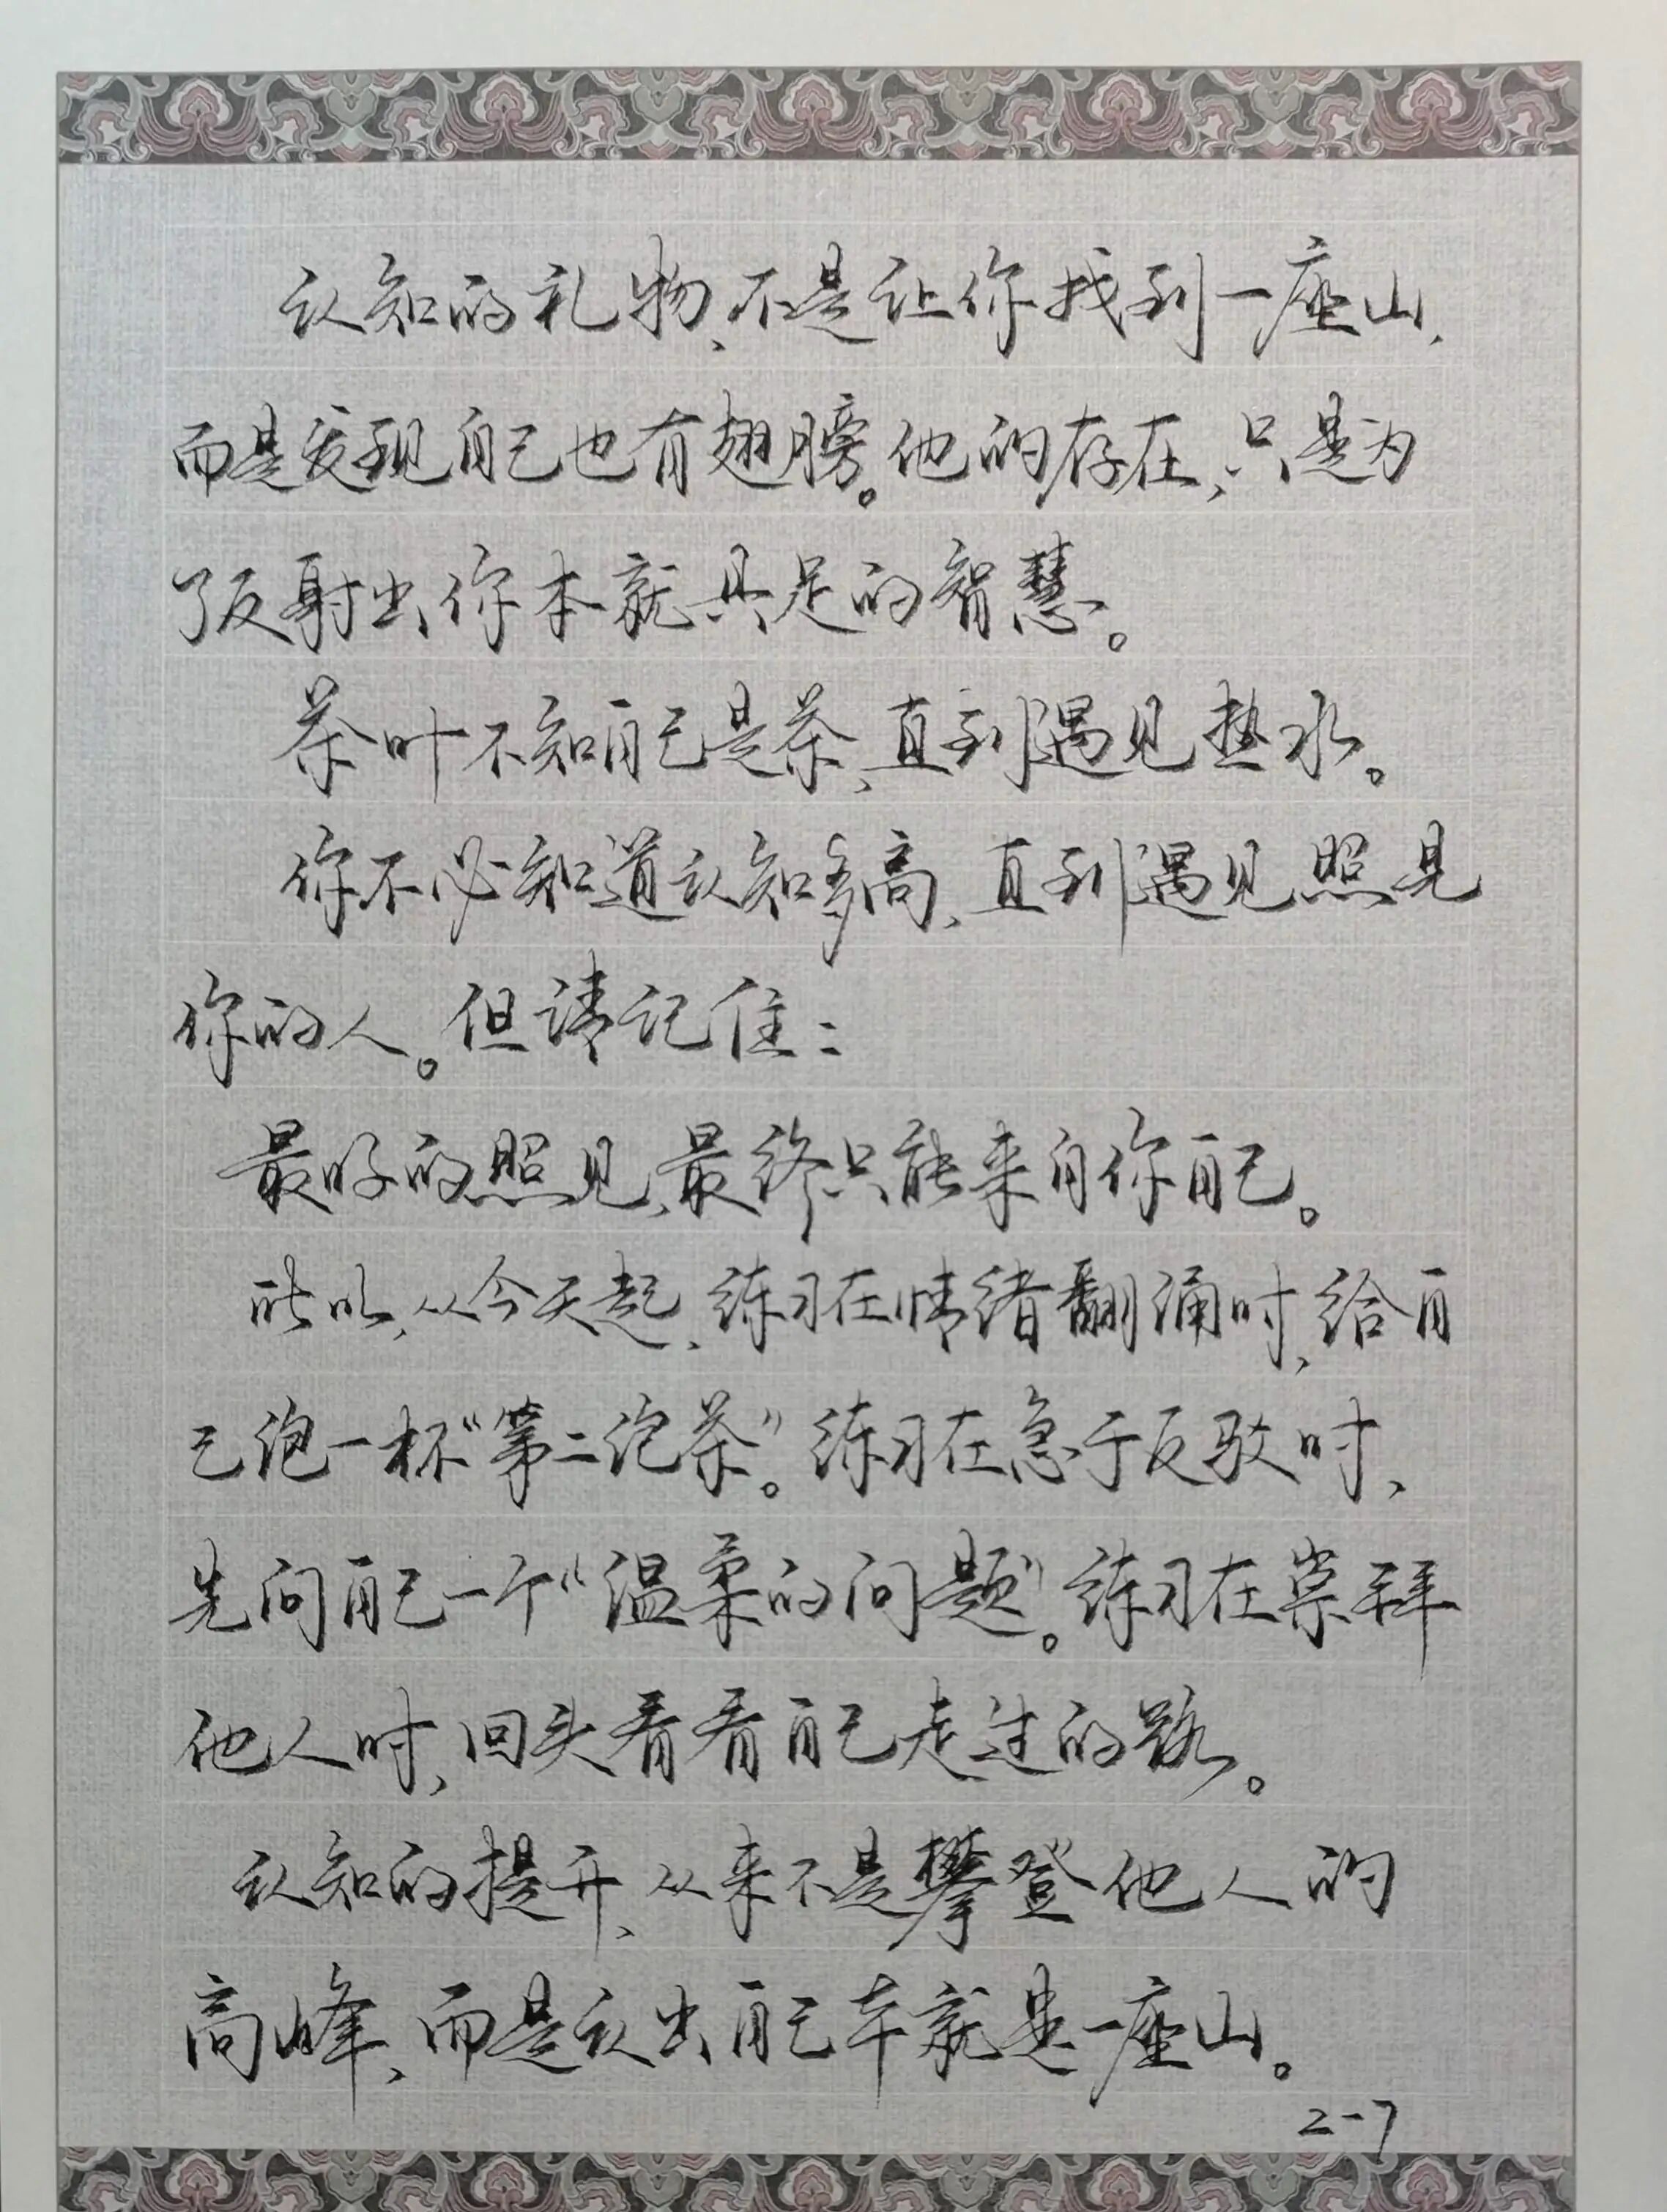 认知的礼物,不是让你找到一座山,
而是发现自己也有翅膀。他的存在,只是为
了反射出你本就具足的智慧。
茶叶不知自己是茶,直到遇见热水。
你不必知道认知多高,直到遇见照见
你的人。但请记住:
最好的照见,最终只能来自你自己。
所以,从今天起,练习在情绪翻涌时,给自
己泡一杯“第二泡茶”。练习在急于反驳时,
先问自己一个“温柔的问题”。练习在崇拜
他人时,回头看看自己走过的路。
认知的提升,从来不是攀登他人的
高峰,而是认出自己本就是一座山。
2-7